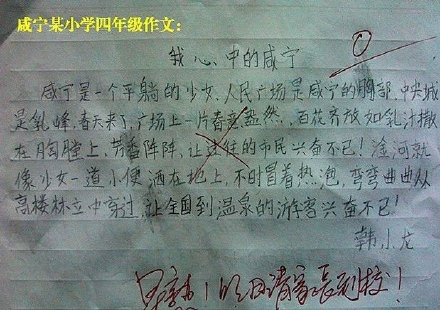 咸宁某小学四年级作文：
我心中的咸宁
咸宁是一个平躺的少女,人民广场是咸宁的胸部,中央城
是乳峰,春天来了,广场上一片春意盎然,百花齐放如乳汁撒
在胸膛上,芳香阵阵,让过往的市民兴奋不已!淦河就
像少女一道小便洒在地上,不时冒着热泡,弯弯曲曲从
高楼林立中穿过,让全国到温泉的游客兴奋不已!
韩小龙
！明日请家长到校！